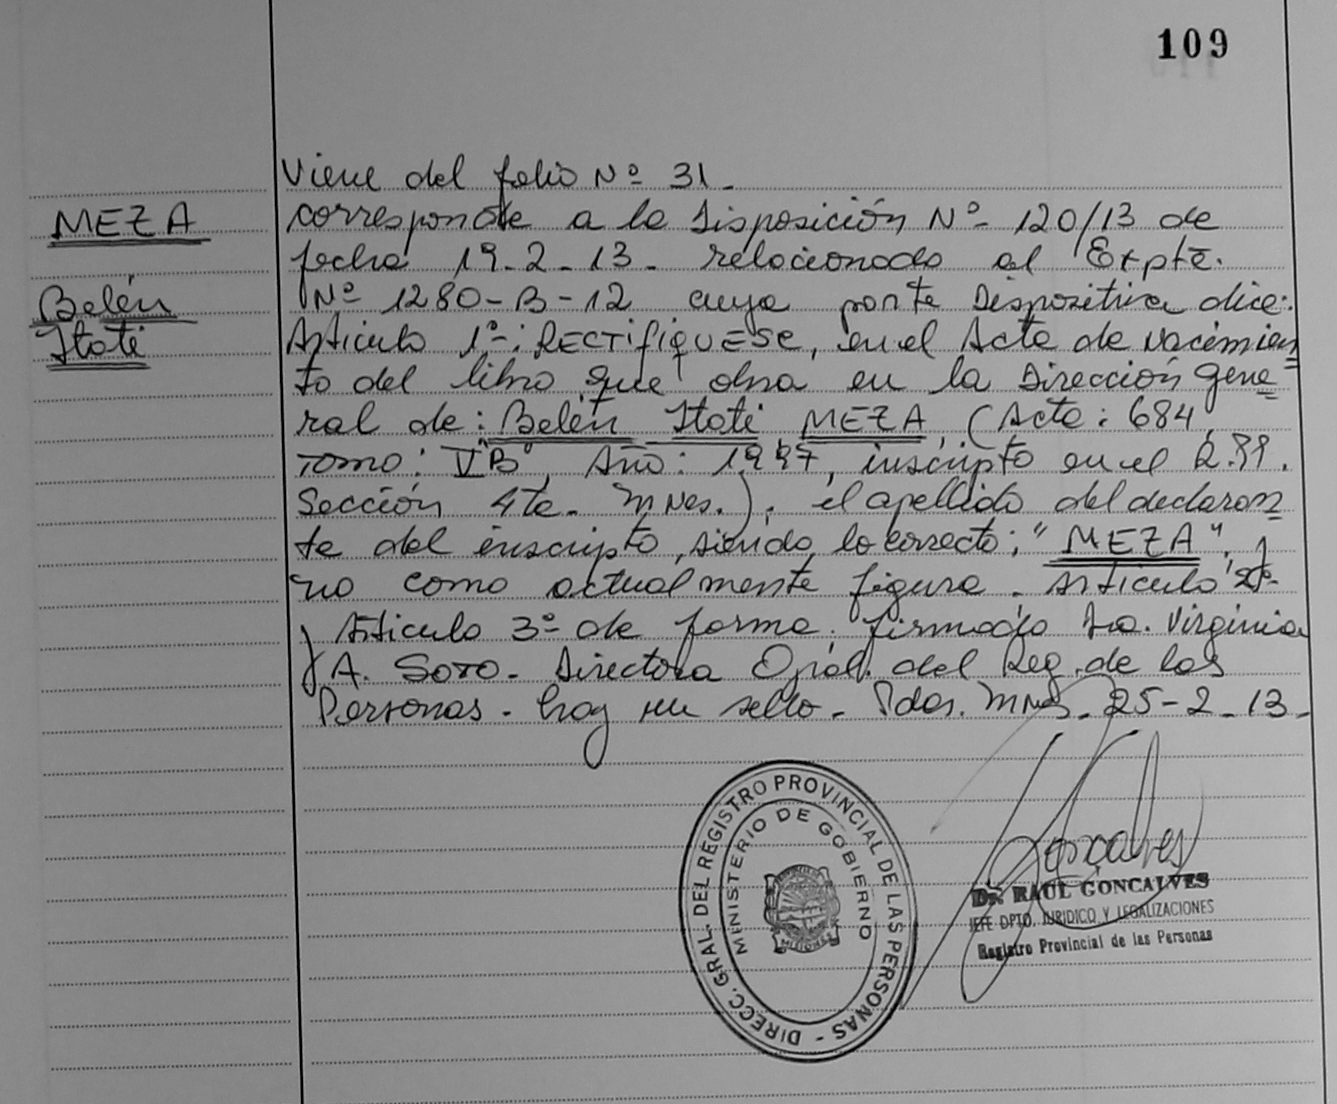 109
Viene del folio Nº 31.
MEZA
corresponde a la Disposición Nº 120/13 de
fecha 19-2-13. relacionado al Expte.
Belén
Nº 1280-B-12 cuya parte Dispositiva dice:
Itatí
Artículo 1º: RECTIFIQUESE, en el Acta de Nacimien
to del libro que obra en la Dirección Gene=
ral de: Belén Itatí MEZA, (Acta: 684,
Tomo: V"B", Año: 1997, inscripto en el
Sección 4ta. Mnes.), el apellido del declaran
te del inscripto, siendo lo correcto: "MEZA", y
no como actualmente figura. Artículo 2º
y Artículo 3º de forma. firmado Dra. Virginia
A. Soto. Directora Gral. del Reg. de las
Personas. hay un sello. Pdas. Mnes. 25-2-13.
DIRECC. GRAL. DEL REGISTRO PROVINCIAL DE LAS PERSONAS -
MINISTERIO DE GOBIERNO
MISIONES
Goncalves
Dr. RAUL GONCALVES
JEFE DPTO. JURIDICO Y LEGALIZACIONES
Registro Provincial de las Personas